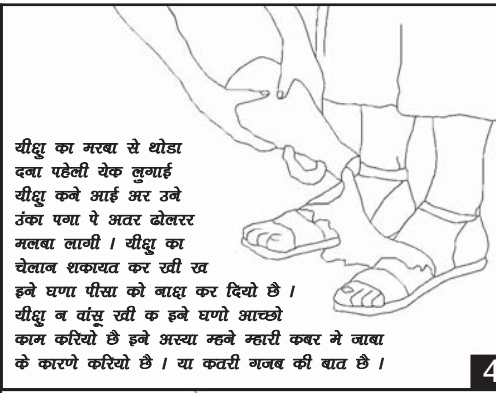 यीक्षु का मरबा से थोडा
दना पहेली येक लुगाई
यीक्षु कने आई अर उने
उंका पगा पे अतर ढोलरर
मलबा लागी । यीक्षु का
चेलान शकायत कर खी ख
इने घणा पीसा को नाक्षा कर दियो छै ।
यीक्षु न वांसू खी क इने घणो आच्छो
काम करियो छै इने अस्या म्हने म्हारी कबर मे जाबा
के कारणे करियो छै । या कतरी गजब की बात छै ।
4